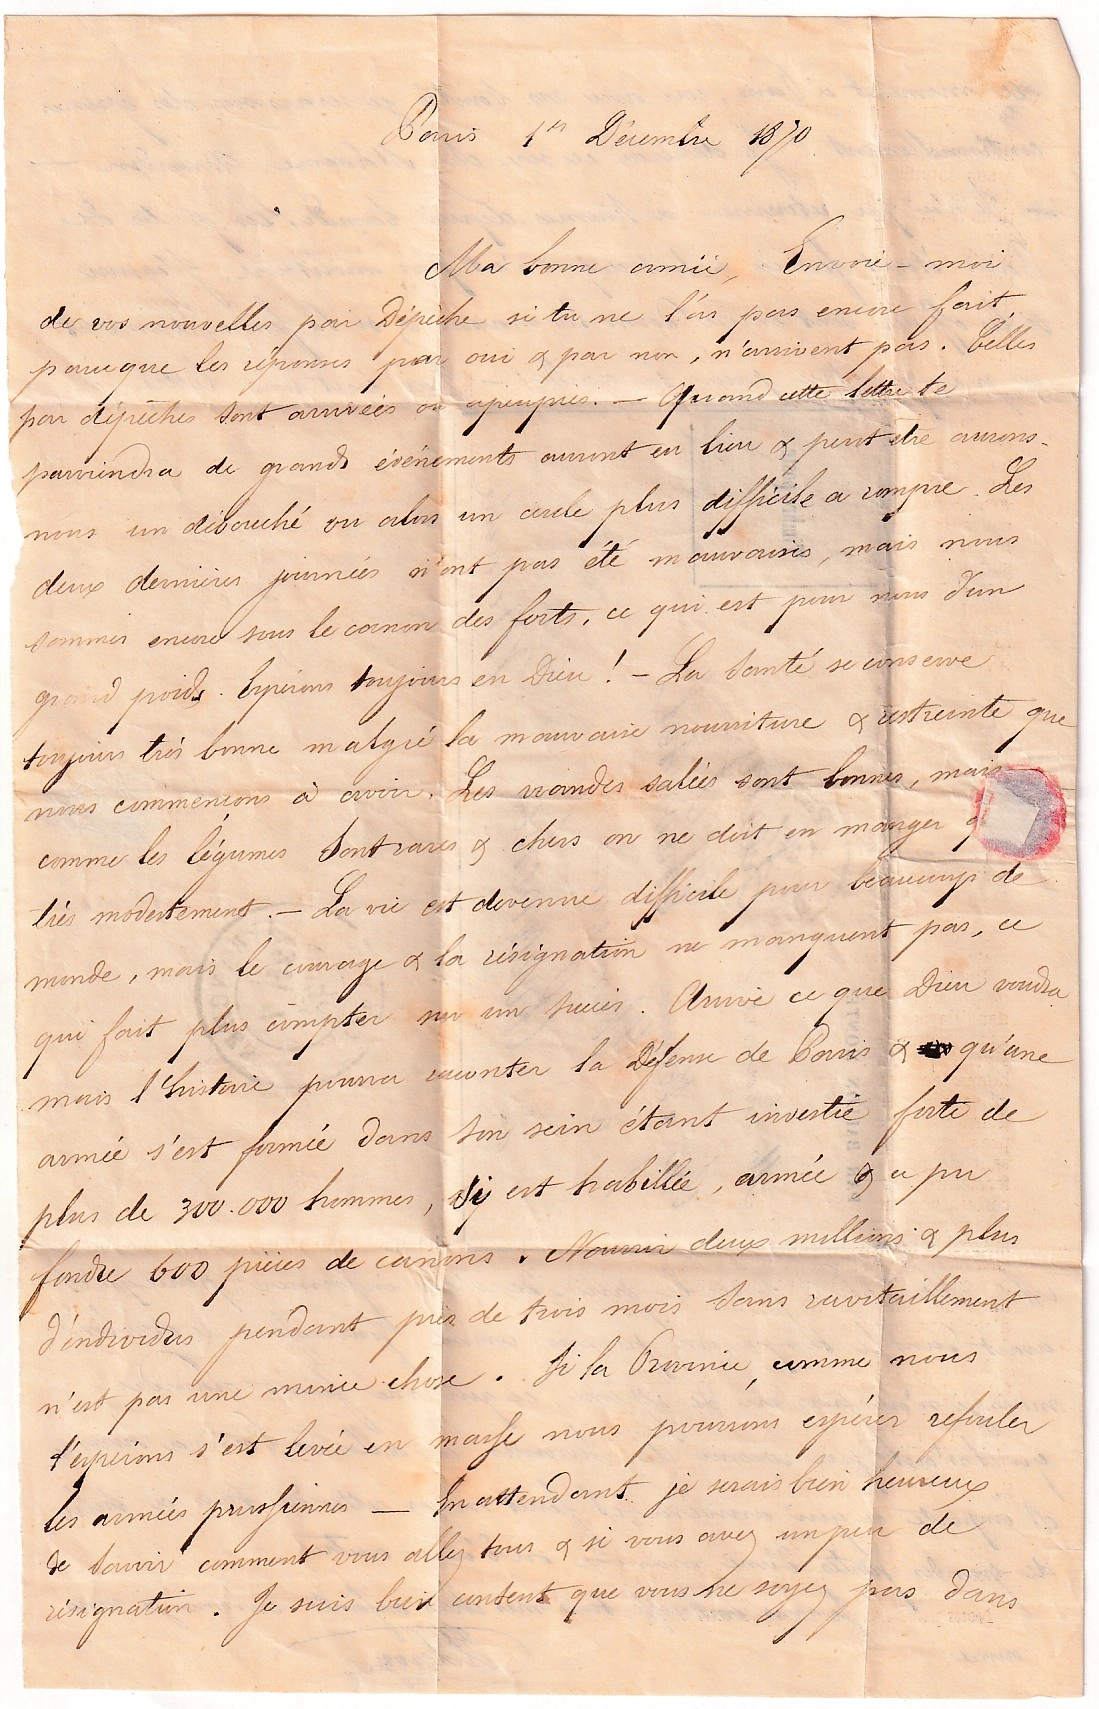 Paris 1er Décembre 1870
Ma bonne amie, Envoie-moi
de vos nouvelles par Dépêche si tu ne l'as pas encore fait,
parceque les réponses par oui & par non, n'arrivent pas. Celles
par dépêches sont arrivées ou apeuprès. — Quand cette lettre te
parviendra de grands événements auront eu lieu & peut être aurons-
nous un débouché ou alors un cercle plus difficile a rompre. Les
deux dernières journées n'ont pas été mauvaises, mais nous
sommes encore sous le canon des forts, ce qui est pour nous d'un
grand poids. Espérons toujours en Dieu ! — La santé se conserve
toujours très bonne malgré la mauvaise nourriture & restreinte que
nous commençons à avoir. Les viandes salées sont bonnes, mais
comme les légumes sont rares & chers on ne doit en manger
très modestement. — La vie est devenue difficile pour beaucoup de
monde, mais le courage & la résignation ne manquent pas, ce
qui fait plus compter sur un succès. Arrive ce que Dieu voudra
mais l'histoire pourra raconter la Défense de Paris & qu'une
armée s'est formée dans son sein étant investie forte de
plus de 300.000 hommes, s'y est habillée, armée & a pu
fondre 600 pièces de canons. Nourrir deux millions & plus
d'individus pendant près de trois mois sans ravitaillement
n'est pas une mince chose. Si la Province, comme nous
l'espérons s'est levée en masse nous pourrons espérer refouler
les armées prussiennes — En attendant je serais bien heureux
de savoir comment vous allez tous & si vous avez un peu de
résignation. Je suis bien content que vous ne soyez pas dans